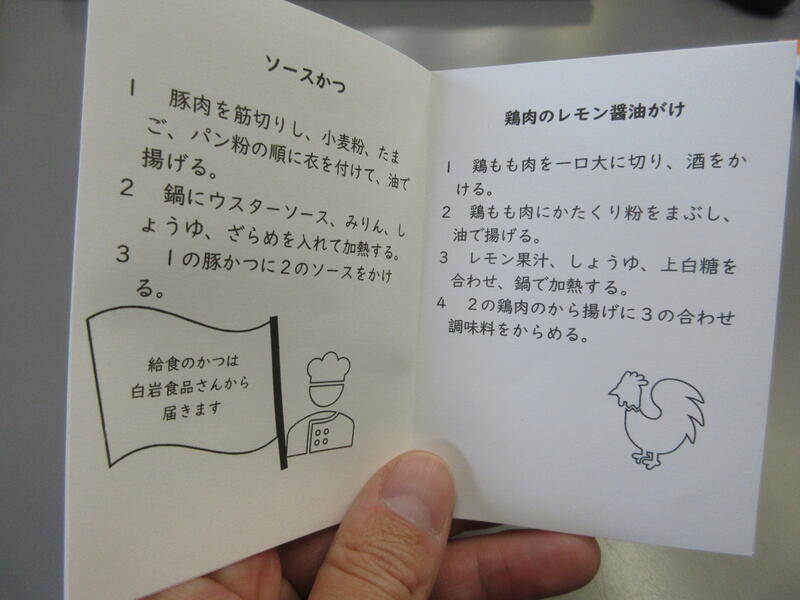 ソースかつ
1　豚肉を筋切りし、小麦粉、たま
ご、パン粉の順に衣を付けて、油で
揚げる。
2　鍋にウスターソース、みりん、し
ょうゆ、ざらめを入れて加熱する。
3　1の豚かつに2のソースをかけ
る。
給食のかつは
白岩食品さんから
届きます
鶏肉のレモン醤油がけ
1　鶏もも肉を一口大に切り、酒をか
ける。
2　鶏もも肉にかたくり粉をまぶし、
油で揚げる。
3　レモン果汁、しょうゆ、上白糖を
合わせ、鍋で加熱する。
4　2の鶏肉のから揚げに3の合わせ
調味料をからめる。